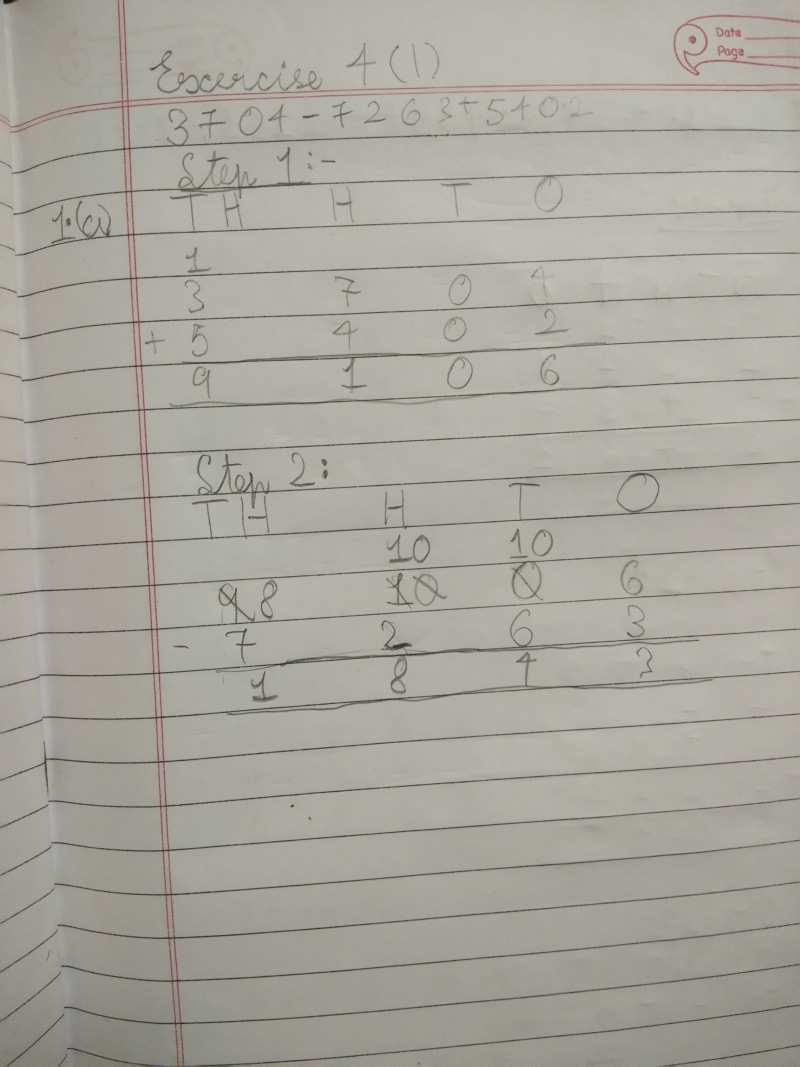 Date
Page
Exercise 4 (1)
3704-7263+5402
Step 1:-
1.(a) T H H T O
1
3 7 0 4
+ 5 4 0 2
9 1 0 6
Step 2:
T H H T O
10 10
9 8 10 0 6
- 7 2 6 3
1 8 4 3